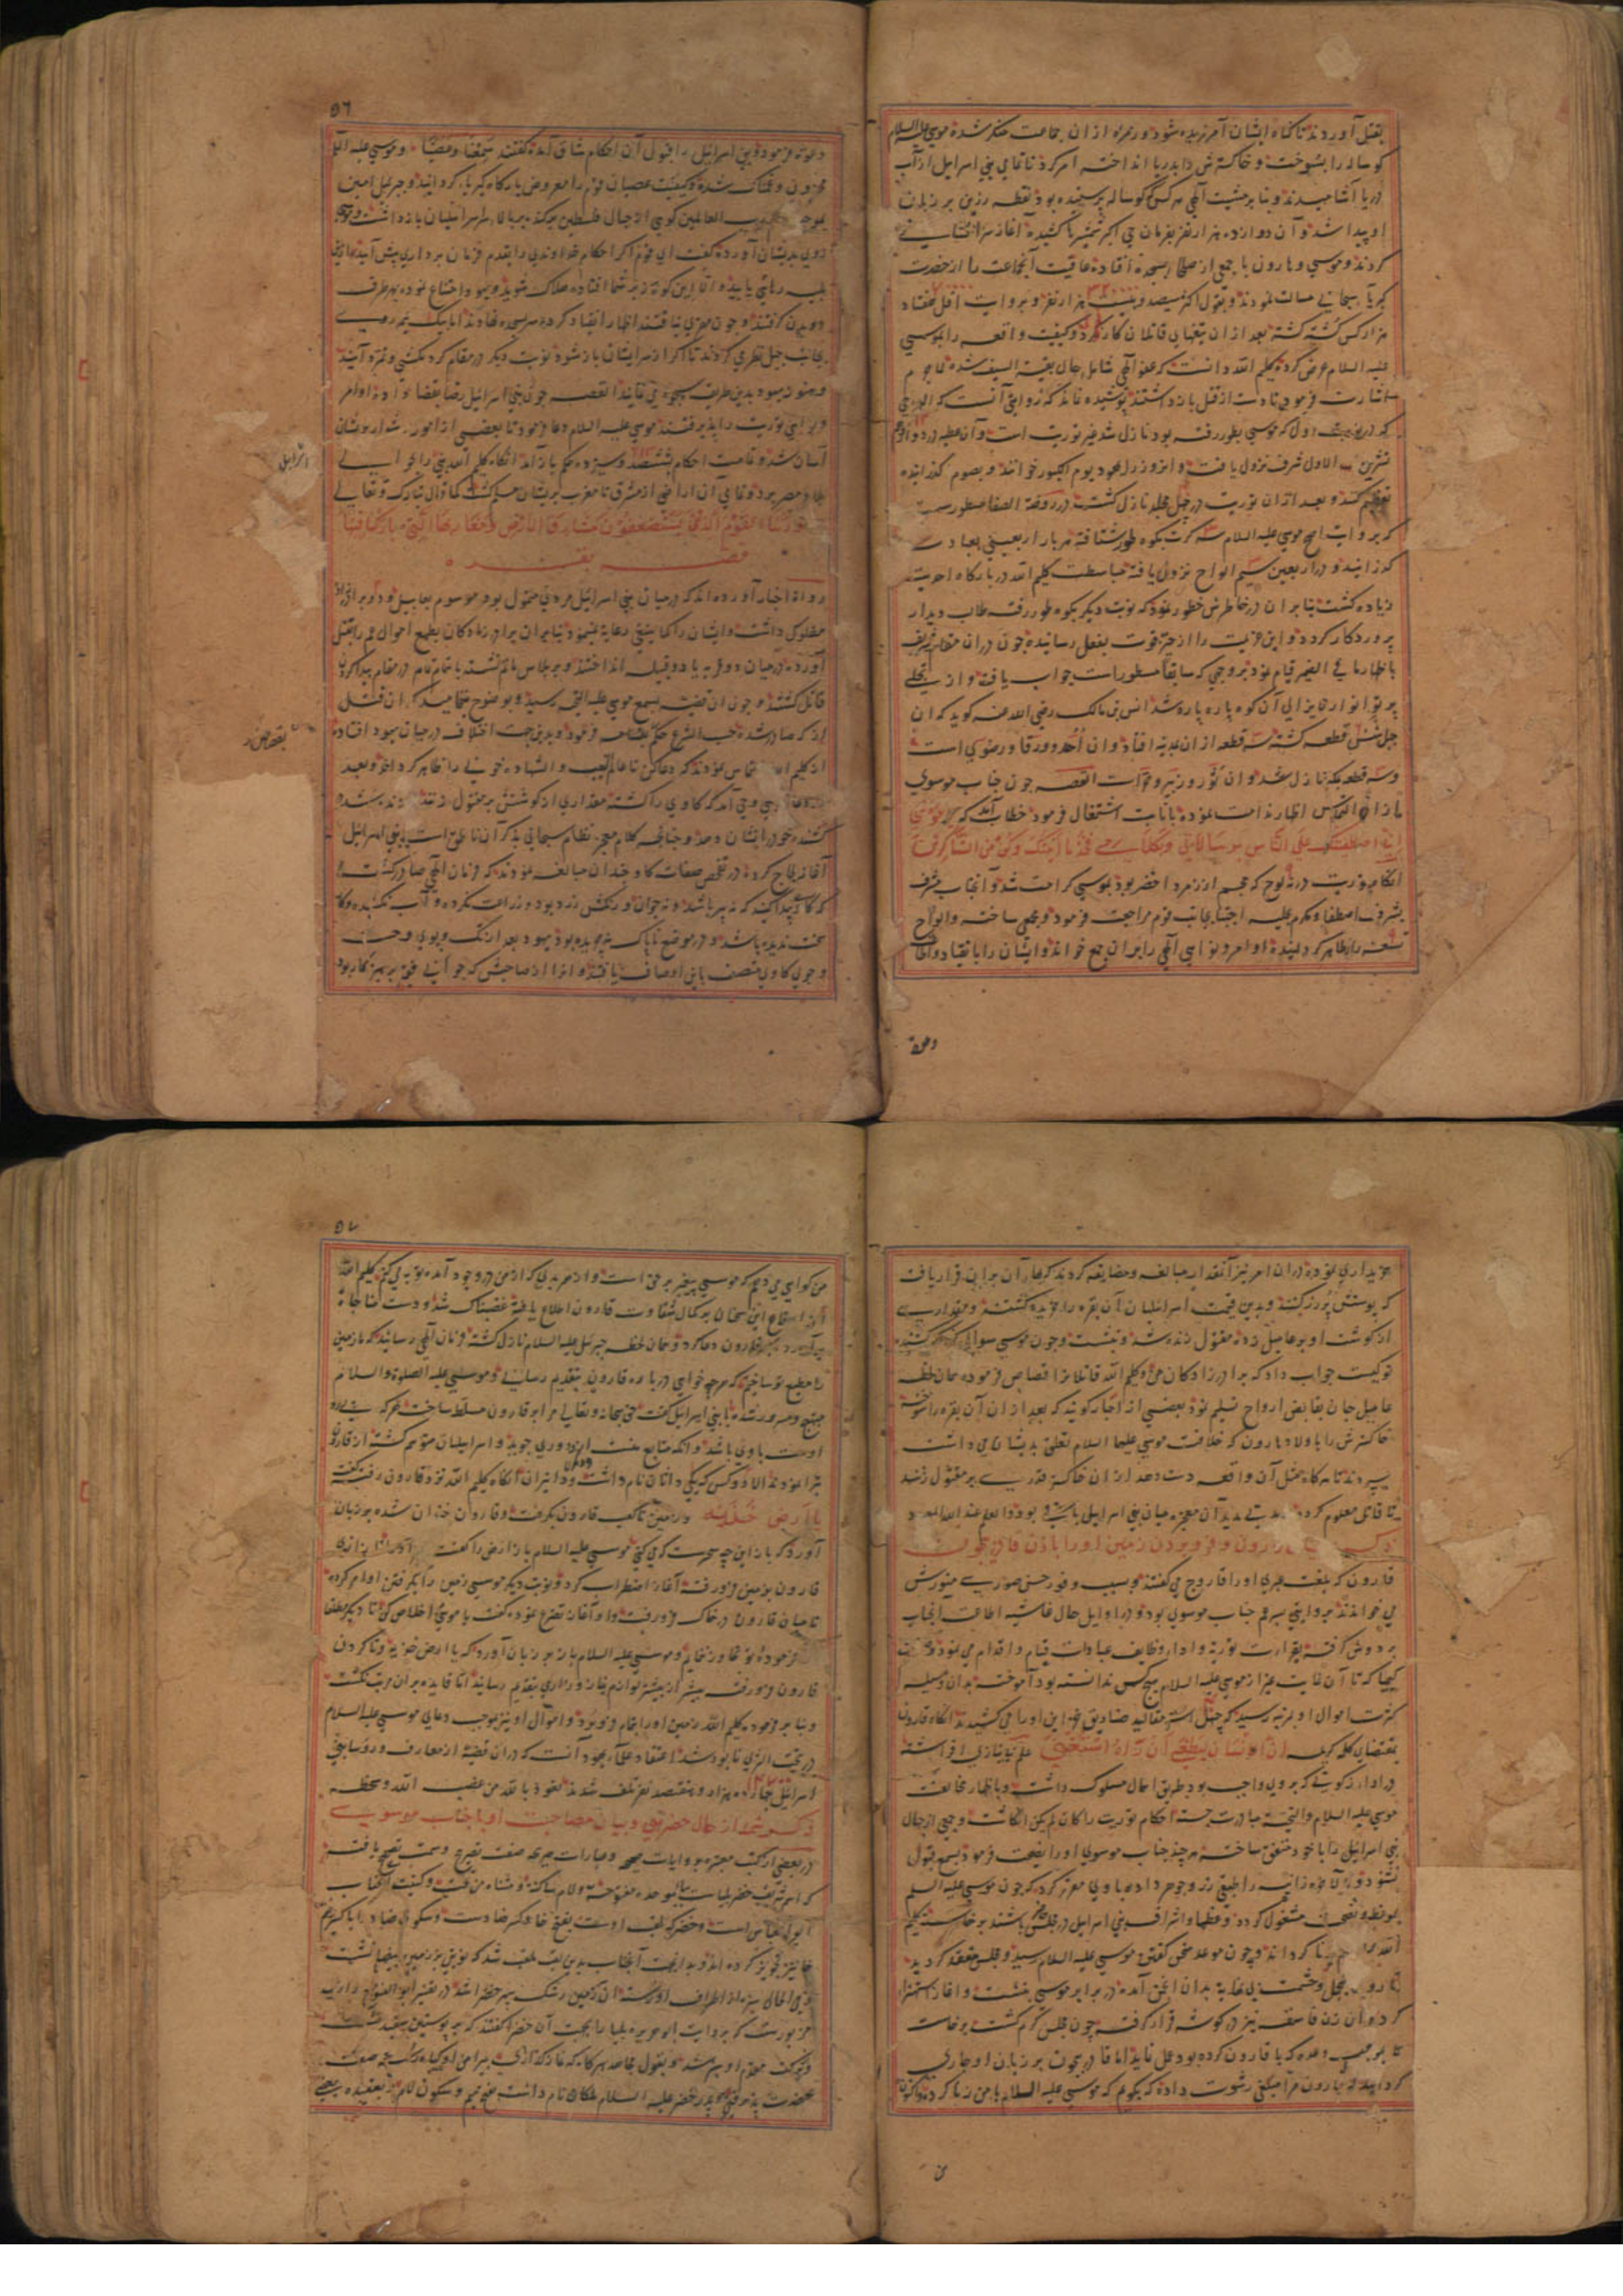 بقتل آوردند تا گناه ایشان آمرزیده شود و هرکه از ان جماعت منکر شد موسی علیه السلام
کوساله را بسوخت و خاکسترش را بدریا انداخته امر کرد تا تمامی بنی اسرائیل از آب
دریا آشامیدند و بنا بر مشیت الهی هر کس کوساله پرستیده بود نقطه زرین بر زبان
او پیدا شد و آن دوازده هزار نفر بفرمان حی اکبر شمشیرها کشیده آغاز سرافشانی
کردند و موسی و هارون با جمعی از صلحا بسجده افتاده عاقبت آنجماعت را از حضرت
کبریا سبحانی مسألت نمودند و بقول اکثر سیصد و بیست هزار نفر و بروایت اقل هفتاد
هزار کس کشته کشته بعد از ان تیغهای قاتلان کار نکرد و کیفیت واقعه را بموسی
علیه السلام عرض کرده کلیم الله دانست که عفو الهی شامل حال بقیة السیف شده لاجرم
اشارت فرمود تا دست از قتل باز داشتند پوشیده نماند که روایتی آنست که الواحی
که نوبت اول که موسی بطور رفته بود نازل شد غیر توریت است و آن عطیه در دوازدهم
تشرین الاول شرف نزول یافت و انروز را یهود یوم الکبور خوانند و بصوم گذرانیده
تعظیم کنند و بعد از ان توریت در جبل نازل کشت در روضة الصفا مسطورست
که بروایت اصح موسی علیه السلام سه کرت بکوه طور شتافته هر بار اربعینی بعبادت
گذرانید و در اربعین سیم الواح نزول یافته مباسطت کلیم الله در بارگاه احدیت
زیاده کشت بنا بران در خاطرش خطور نمود که نوبت دیگر بکوه طور رفته طالب دیدار
پروردگار کردد و این عزیمت را از حیز قوت بفعل رسانیده چون دران مقام شریف
باظهار ما فی الضمیر قیام نمود بر وجهی که سابقا مسطور است جواب یافت و از تجلی
پرتو انوار آن کوه پاره پاره شد انس بن مالک رضی الله عنه کوید که ان
جبل شش قطعه کشته سه قطعه ازان بمدینه افتاد و ان احد و ورقا و رضوی است
و سه قطعه بمکه نازل شد و ان ثور و ثبیر و حراست القصه چون جناب موسوی
از ان التماس اظهار ندامت نموده بانابت اشتغال فرمود خطاب آمد که یا موسی
انی اصطفیتک علی الناس برسالاتی و بکلامی فخذ ما آتیتک و کن من الشاکرین
احکام توریت در نه لوح که مجسم از زمرد اخضر بود بموسی کرامت شد و آنجناب مشرف
بشرف اصطفا و مکرم اجتبا بجانب قوم مراجعت فرمود و مجمعی ساخته و الواح
تسعه را ظاهر گردانیده اوامر و نواهی الهی را بران جمع خواند و ایشان را بانقیاد و اطاعت
دعوت
٥٦
دعوت فرمود و بنی اسرائیل را قبول آن احکام شاق آمده گفتند سمعنا و عصینا و موسی علیه السلام
محزون و غمناک شده کیفیت عصیان قوم را معروض بارگاه کبریا گردانید و جبرئیل امین
بموجب رب العالمین کوهی از جبال فلسطین برکنده بر بالای سر اسرائیلیان بازداشت و موسی
روی بدیشان آورده گفت ای قوم اگر احکام خداوندی را بقدم فرمان برداری پیش آیید ازین
بلیه رهائی یابید و الا این کوه بر شما افتاده هلاک شوید و یهود امتناع نموده بهر طرف
دویدن گرفتند و چون مفری نیافتند اظهار انقیاد کرده سر بسجده نهادند اما بیک نیم روی
بجانب جبل نظر می کردند تا اگر از سر ایشان باز شود نوبت دیگر در مقام گردنکشی و تمرد آیند
و هنوز یهود بدین طریق سجده می نمایند القصه چون بنی اسرائیل رضا بقضا داده اوامر
و نواهی توریت را پذیرفتند موسی علیه السلام دعا فرمود تا بعضی از امور دشوار بر ایشان
آسان شد و تمامت احکام ششصد و سیزده حکم باز آمد انگاه کلیم الله بنی را بحوالی
بلاد مصر برد و تمامی آن اراضی از مشرق تا مغرب بریشان مسلم گشت کما قال تبارک و تعالی
و اورثنا القوم الذین کانوا یستضعفون مشارق الارض و مغاربها التی بارکنا فیها
قصه بقره
رواة اخبار آورده اند که در میان بنی اسرائیل مردی متمول بود موسوم بعامیل و دو برادرزاده
مفلوک داشت و ایشان را کما ینبغی رعایت نمی نمود بنا بران برادرزادگان بطمع اموال عم را بقتل
آورده در میان دو قریه یا دو قبیله انداختند و بر پلاس ماتم نشسته باهتمام تمام در مقام پیدا کردن
قاتل گشتند و چون ان قضیه بسمع موسی علیه التحیه رسید و بوضوح نمی انجامید که ان قتل
از که صادر شده حسب الشرع حکم بقسامه فرمود و بدین جهت اختلاف در میان یهود افتاده
از کلیم الله التماس نمودند که دعا کن تا عالم الغیب و الشهاده خونی را ظاهر گرداند و بعد
وحی آمد که گاوی را کشته مقداری از گوشتش بر مقتول زنند زنده شده
کشنده خود را نشان دهد و چنانچه کلام معجز نظام سبحانی بذکر آن ناطق است بنی اسرائیل
آغاز لجاج کرده در تفحص صفات گاو چندان مبالغه نمودند که فرمان الهی صادر گشت
که گاوی پیدا کنید که نه پیر باشد و نه جوان و رنگش زرد بود و زراعت نکرده و آب نکشیده و کار
سخت ندیده باشد و در موضع ناپاک نچریده بود یهود بعد از تک و پوی و جست
و جوی گاوی متصف باین اوصاف یافتند و انرا از صاحبش که جوانی متقی پرهیزکار بود
خریداری نموده دران امر نیز آنقدر مبالغه و مضایقه کردند که بهای آن بران قرار یافت
که پوستش پر زر کنند و بدین قیمت اسرائیلیان آن بقره را خریده کشتند و مقداری
از گوشت او بر عامیل زده مقتول زنده شد و بنشست و چون موسی سوال کرد که کشنده
تو کیست جواب داد که برادرزادگان من و کلیم الله قاتلان را قصاص فرموده همان لحظه
عامیل جان بقابض ارواح تسلیم نمود بعضی از احبار گویند که بعد از ان آن بقره را سوخته
خاکسترش را باولاد هارون که خلافت موسی علیهما السلام تعلق بدیشان می داشت
سپردند تا هرگاه مثل آن واقعه دست دهد از ان خاکستر قدری بر مقتول زنند
تا قاتل معلوم گردد مدتی مدید آن معجزه میان بنی اسرائیل باقی بود و العلم عند الله المعبود
ذکر قارون و فرو بردن زمین او را باذن قادر بیچون
قارون که بلغت عبری او را قاروح می گفتند و بسبب وفور حسن صورت منورش
می خواندند بروایتی پسر عم جناب موسوی بود و در اوایل حال غاشیه اطاعت آنجناب
بر دوش گرفته بقراءت توریة و اداء وظایف عبادات قیام و اقدام می نمود
کیمیا که تا آن غایت غیر از موسی علیه السلام هیچ کس ندانسته بود آموخته بدان وسیله
کثرت اموال او بمرتبه رسید که چهل استر مقالید صنادیق خزاین او را می کشیدند انگاه قارون
بمقتضای کلمه کریمه ان الانسان لیطغی ان رآه استغنی علم بی نیازی افراشته
در اداء زکوتی که بر وی واجب بود طریق اهمال مسلوک داشت و باظهار مخالفت
موسی علیه السلام والتحیه مبادرت جسته احکام توریت را کان لم یکن انگاشت و جمعی از جهال
بنی اسرائیل را با خود متفق ساخته هر چند جناب موسوی او را نصیحت فرمود بسمع قبول
نشنود و زانیه را طبقی زر و جوهر داده با وی مقرر کرد که چون موسی علیه السلام
بموعظه و نصیحت مشغول گردد و عظما و اشراف بنی اسرائیل در مجلس حاضر باشند برخاسته کلیم
الله را گرداند و چون موعد متحقق گشته موسی علیه السلام رسید و مجلس منعقد گردید
قارون بتجمل و حشمت بی غایة بدان انجمن آمده در برابر موسی بنشست و آغاز استهزا
کرد و آن زن فاسقه نیز در گوشه قرار گرفت چون مجلس گرم گشت برخاست
تا بموجب وعده که با قارون کرده بود عمل نماید اما قادر بیچون بر زبان او جاری
گردانید که قارون مرا مبلغی رشوت داده که بگویم که موسی علیه السلام با من زنا کرد و اکنون
من
٥٧
من گواهی می دهم که موسی پیغمبر بر حق است و از هر بدی که از من در وجود آمده توبه می کنم کلیم الله
از استماع این سخنان بر کمال شقاوت قارون اطلاع یافته غضبناک شد و دست مناجات
برآورده قارون دعا کرد و همان لحظه جبرئیل علیه السلام نازل گشته فرمان الهی رسانید که ما زمین
را مطیع تو ساختیم که هرچه خواهی در باره قارون بتقدیم رساند و موسی علیه الصلوة والسلام
مبتهج و مسرور شده با بنی اسرائیل گفت حق سبحانه و تعالی مرا بر قارون مسلط ساخت هر که پیرو
اوست با وی باشد و انکه متابع منست از وی دوری جوید و اسرائیلیان متوهم گشته از قارون
تبرا نمودند الا دو کس که یکی داثان نام داشت و دیگر انگاه کلیم الله نزد قارون رفته گفت
یا ارض خذیه و زمین تا کعب قارون بگرفت و قارون خندان شده بر زبان
آورد که باز این چه سحرست که می کنی موسی علیه السلام باز ارض را گفت
قارون بزمین فرو رفته آغاز اضطراب کرد و نوبت دیگر موسی زمین را بگرفتن او امر کرده
تا میان قارون در خاک فرو رفت و او آغاز تضرع نموده گفت یا موسی مرا خلاص کن تا دیگر
فرموده تو تجاوز ننمایم و موسی علیه السلام باز بر زبان آورد که یا ارض خذیه و تا گردن
قارون فرو رفت بیشتر از پیشتر لوازم نیاز و زاری بتقدیم رسانید اما فایده بران مترتب نگشت
و بنا بر فرموده کلیم الله زمین او را بتمام فرو برد و اموال او نیز بموجب دعای موسی علیه السلام
در تحت الثری نابود شد اعتقاد علماء یهود آنست که دران قضیه از معارف و روسای بنی
اسرائیل چهارده هزار و هفتصد نفر تلف شدند نعوذ بالله من غضب الله و سخطه
ذکر شمه از حال خضر نبی و بیان مصاحبت او با جناب موسوی
در بعضی از کتب معتبره بروایات صحیحه و عبارات صریحه صفت تصریح و سمت تصحیح یافته
که اسم شریف خضر بلیاست بباء موحده مفتوحه و لام ساکنه و مثناه من تحت و کنیت آنجناب
ابو العباس است و خضر که لقب اوست بفتح خا و کسر ضادست و سکون ضاد با کسر
خا نیز تجویز کرده اند و بدان جهت آنجناب بدین لقب ملقب شد که نوبتی بر زمین بیضا نشست
فی الحال سبزه از اطراف او رسته آن زمین رشک سپهر خضرا شد در تفسیر ابو الفتوح رازی
مزبورست که بروایت ابو هریره بلیا را بجهت آن خضر گفتند که بر پوستین سفید نشست